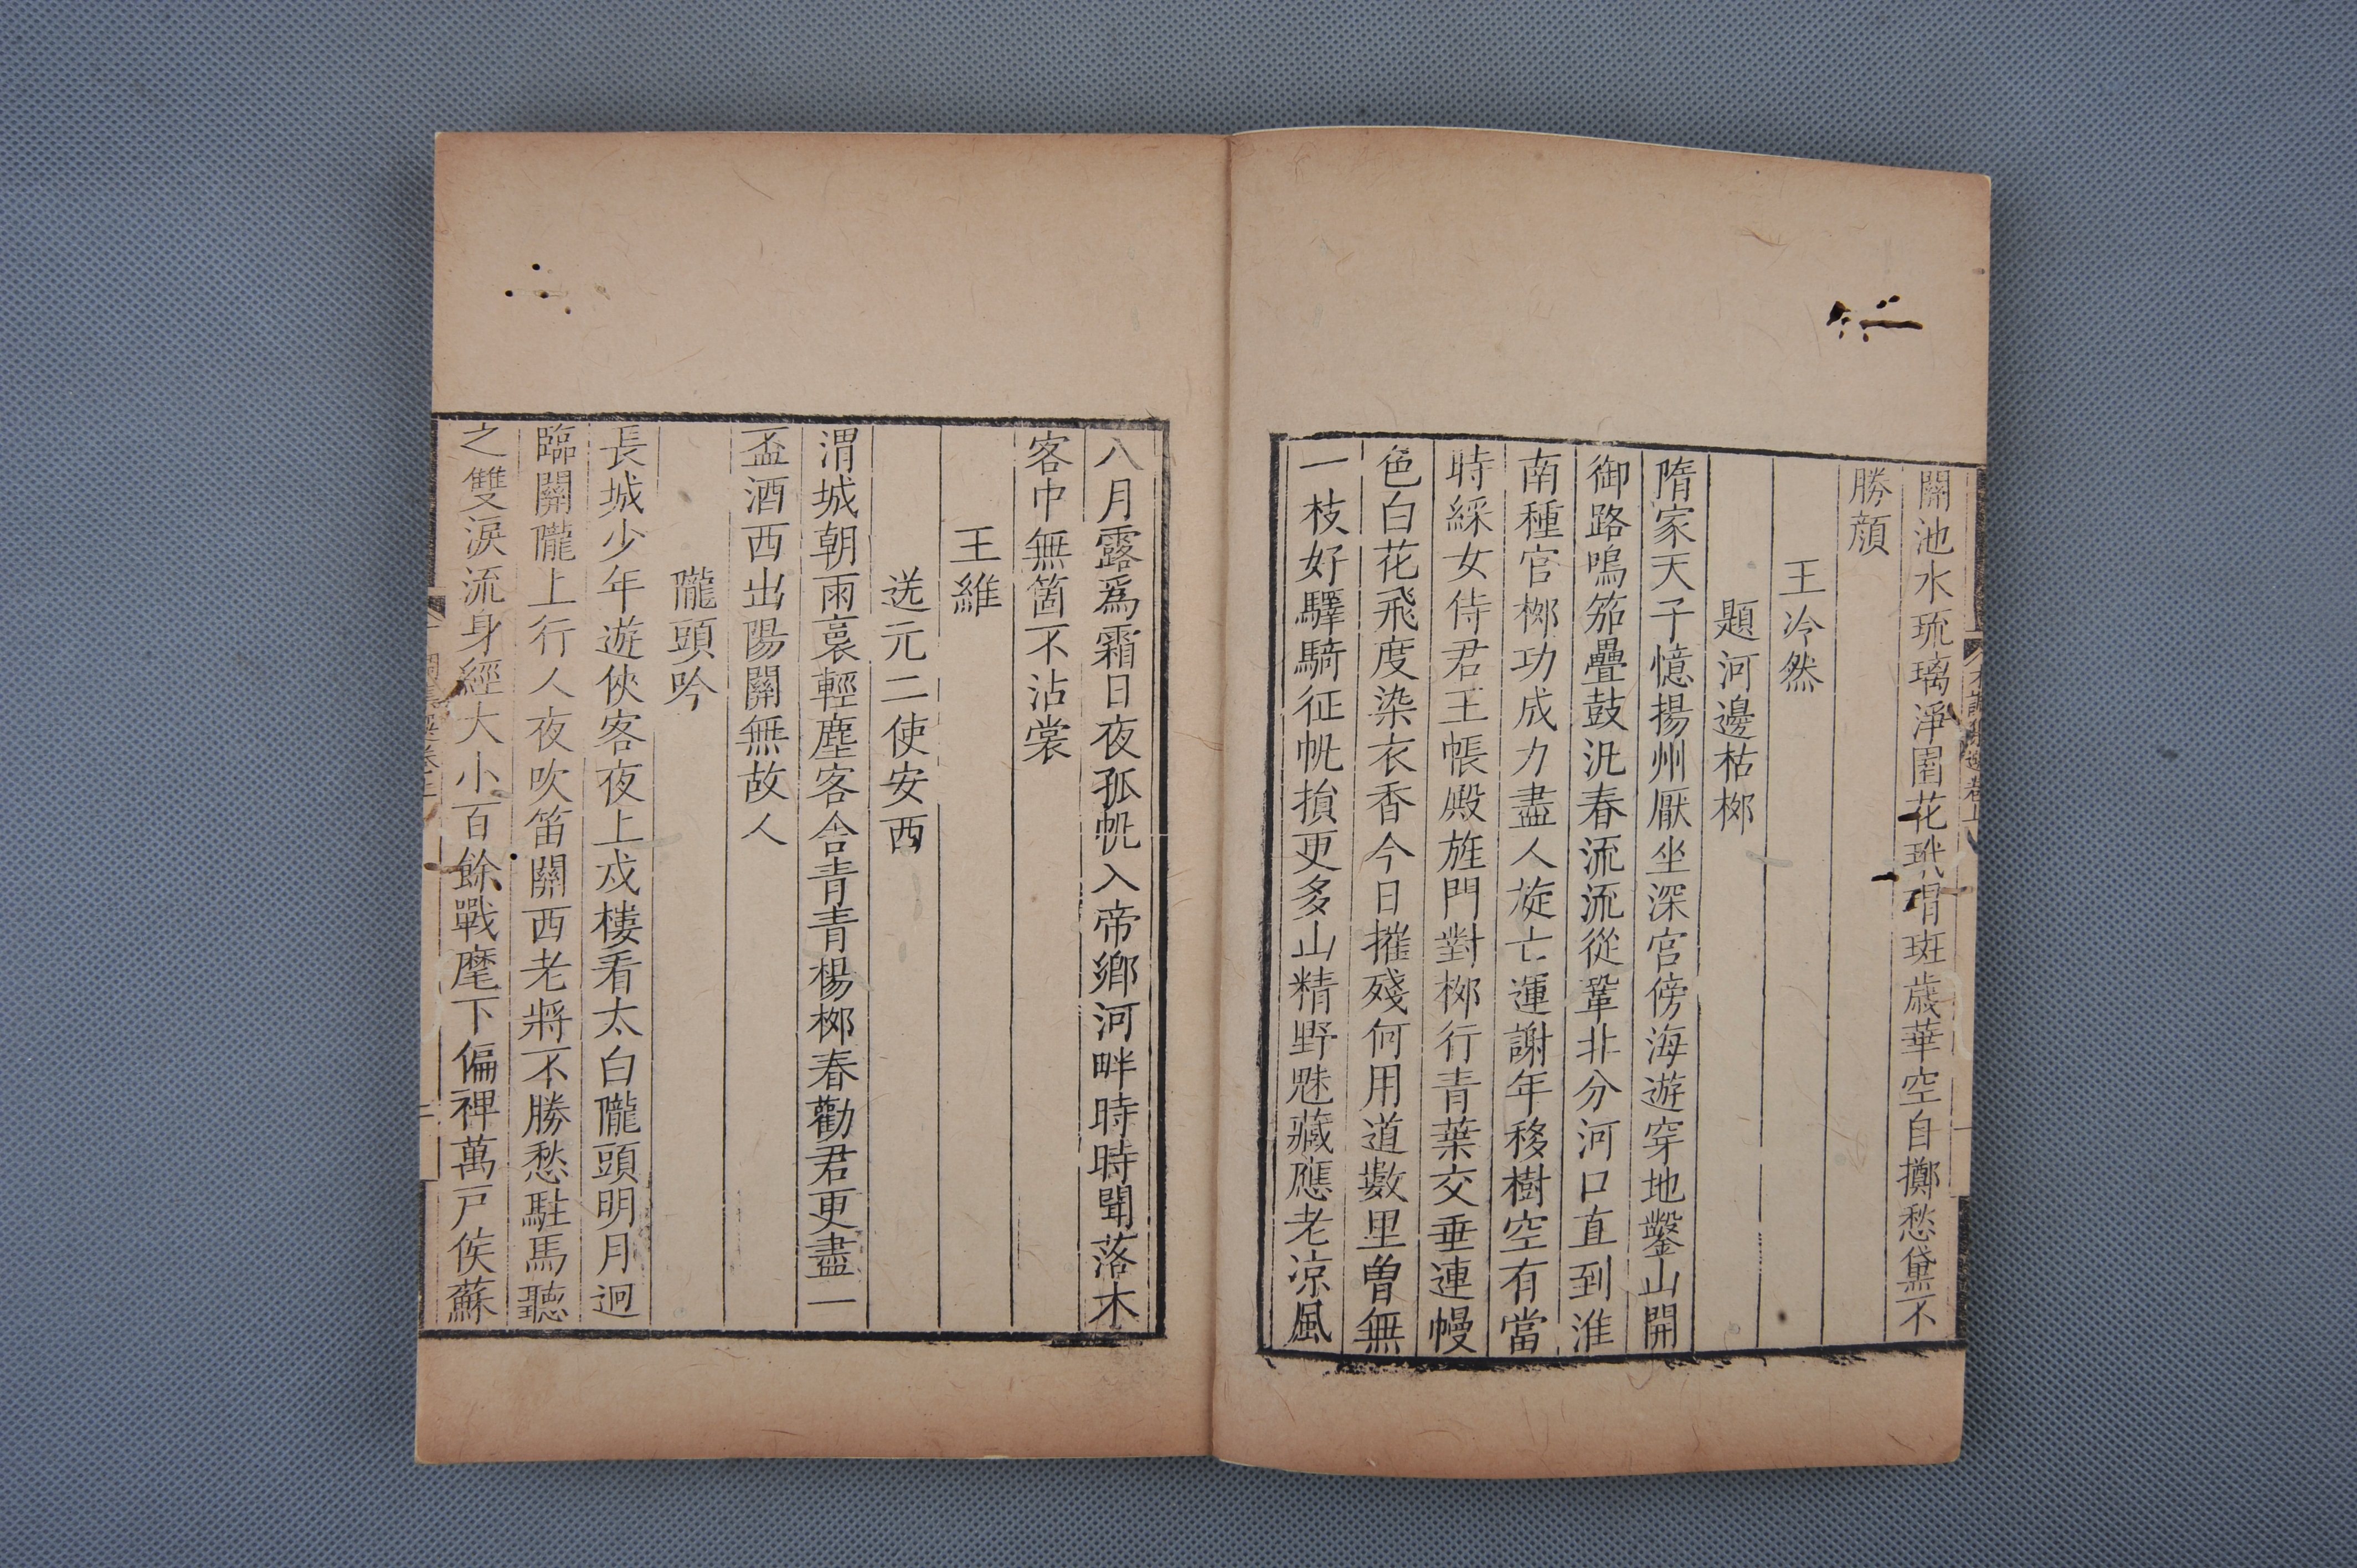 開池水琉璃淨園花玳瑁斑歲華空自擲愁黛不
勝顔
王冷然
題河邊枯桺
隋家天子憶揚州厭坐深宮傍海遊穿地鑿山開
御路鳴笳疊鼓汎春流流從鞏非分河口直到淮
南種官桺功成力盡人旋亡運謝年移樹空有當
時綵女侍君王帳殿旌門對桺行青葉交垂連幔
色白花飛度染衣香今日摧殘何用道數里曽無
一枝好驛騎征帆損更多山精野魅藏應老凉風
八月露爲霜日夜孤帆入帝鄉河畔時時聞落木
客中無箇不沾裳
王維
送元二使安西
渭城朝雨裛輕塵客舎青青楊桺春勸君更盡一
盃酒西出陽關無故人
隴頭吟
長城少年遊俠客夜上戍樓看太白隴頭明月迥
臨關隴上行人夜吹笛關西老將不勝愁駐馬聽
之雙淚流身經大小百餘戰麾下偏裨萬戸侯蘇